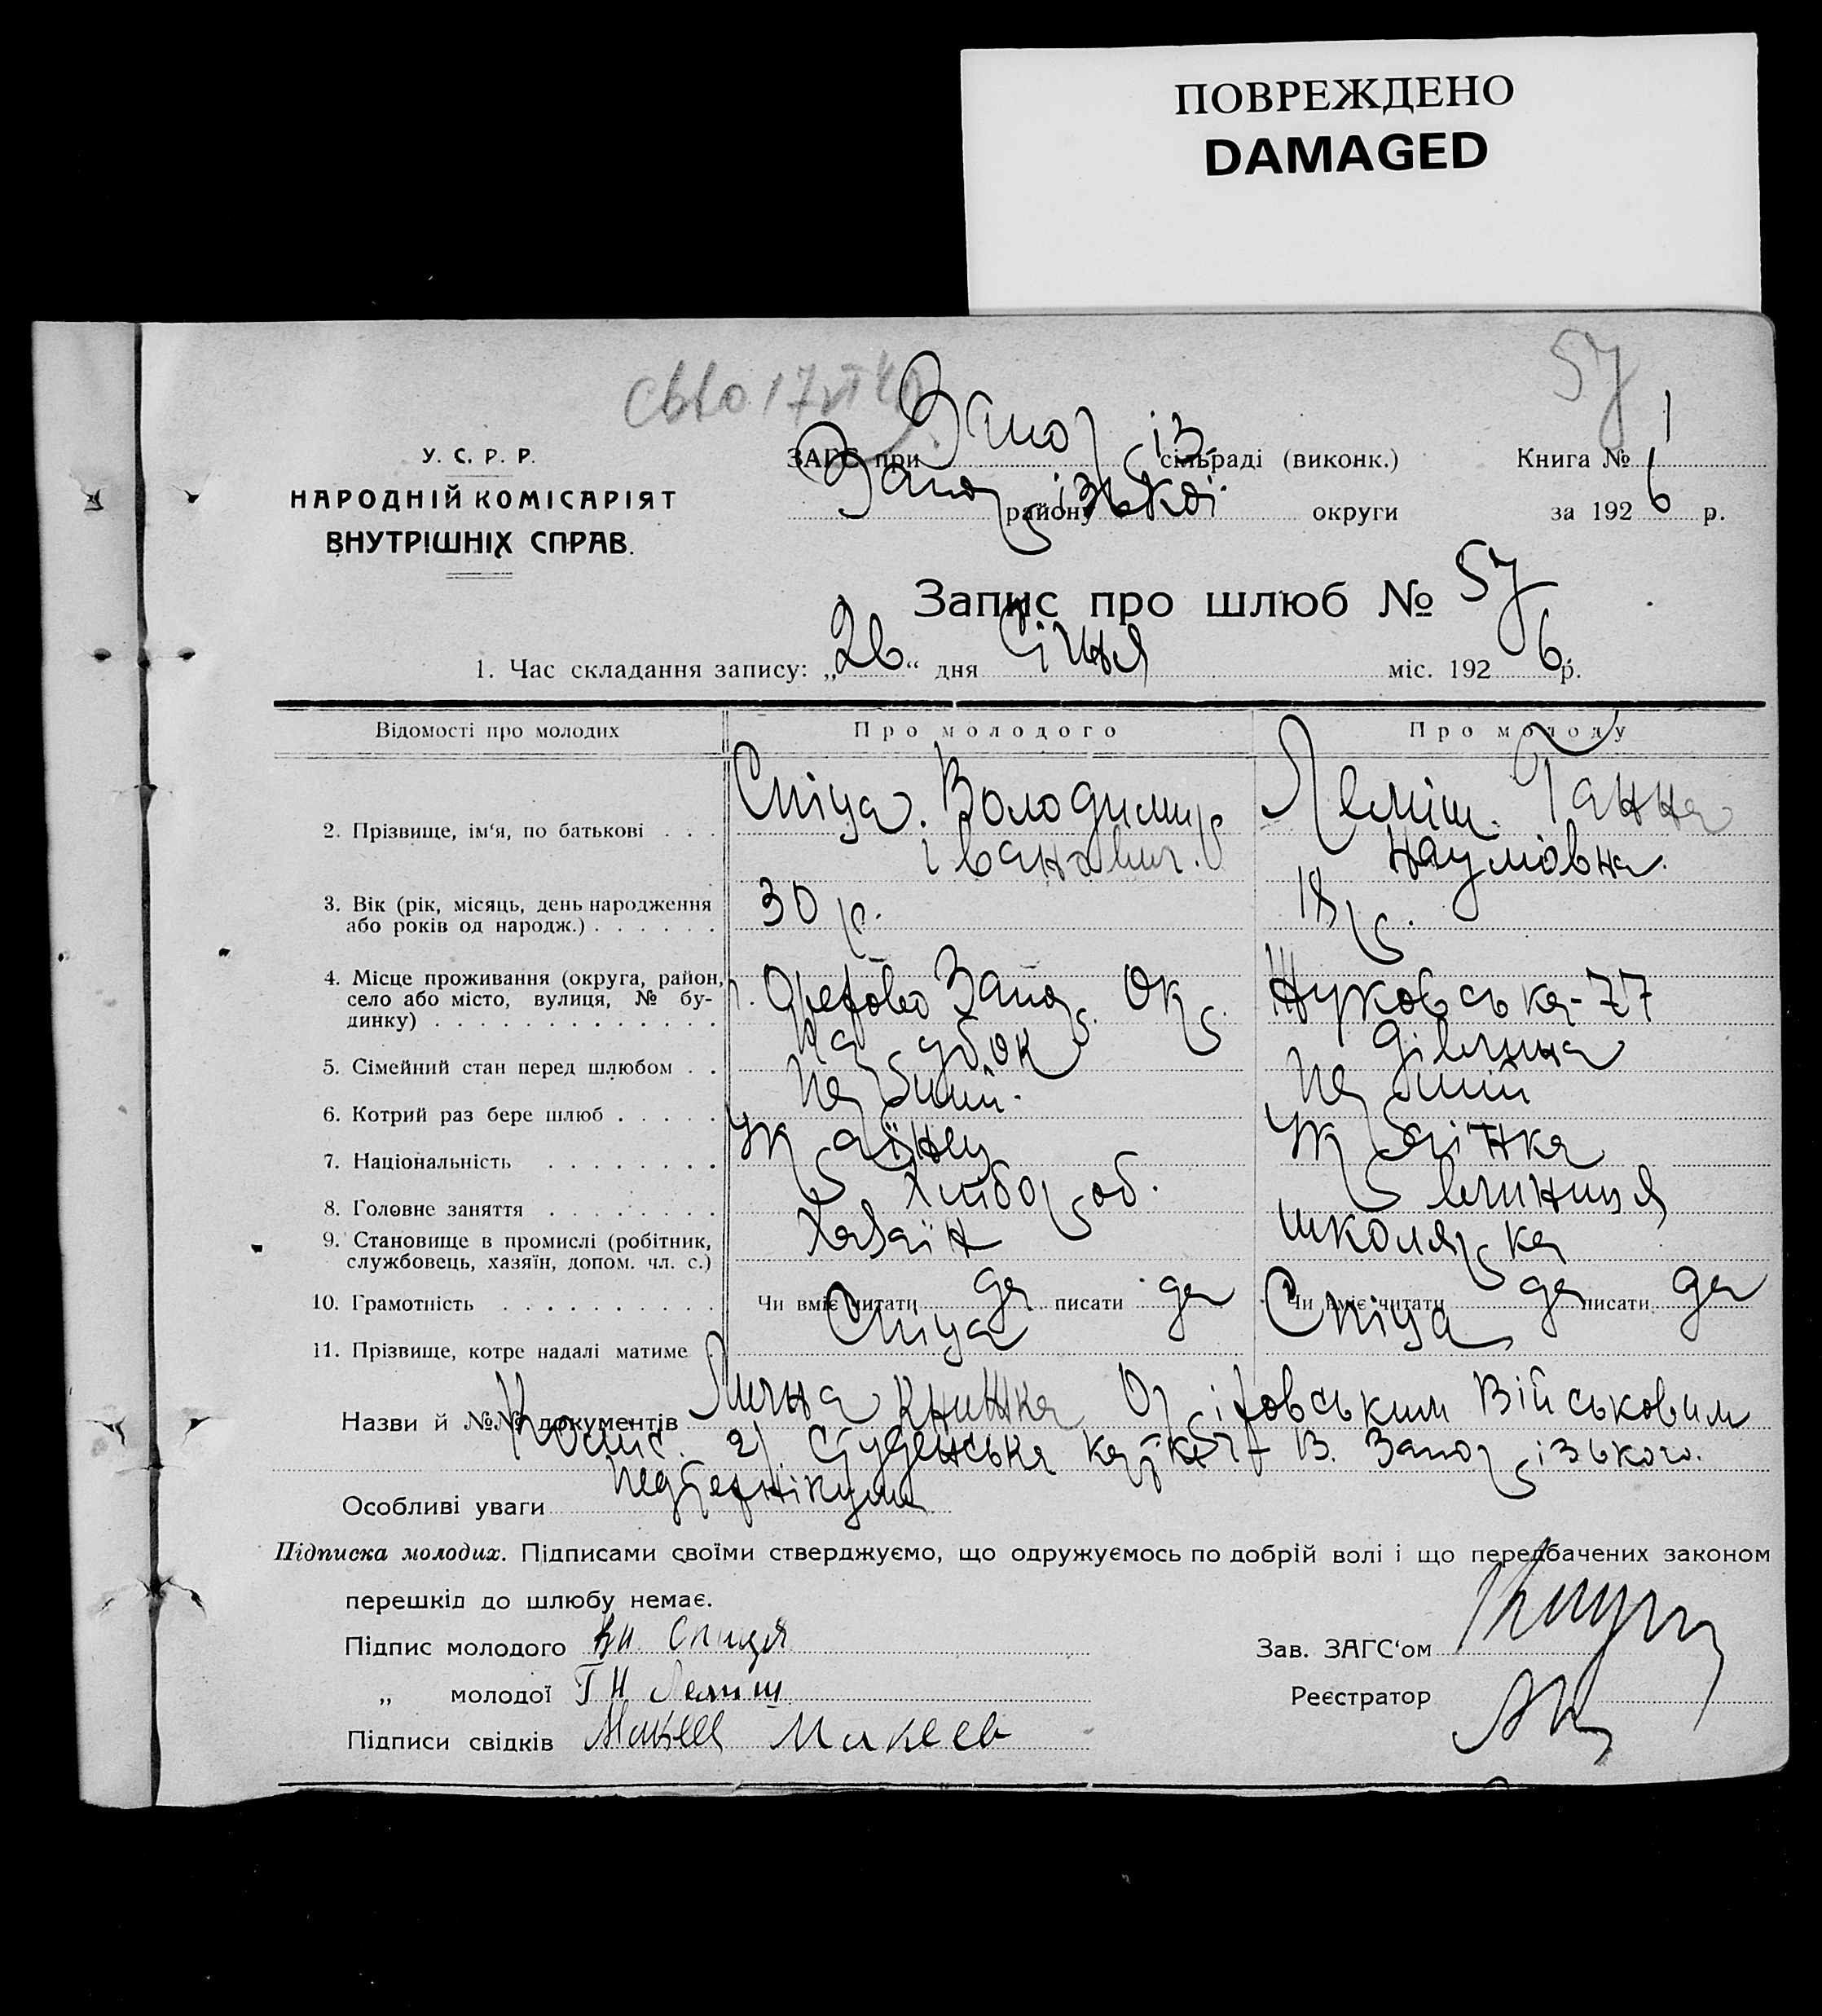 ПОВРЕЖДЕНО
DAMAGED
57
У. С. Р. Р.
НАРОДНІЙ КОМІСАРІЯТ
ВНУТРІШНІХ СПРАВ.
ЗАГС при Запоріз. сільраді (виконк.)
Книга № 1
Запорізької району округи
за 1926 р.
Запис про шлюб № 57
1. Час складання запису: „26“ дня Січня міс. 1926 р.
Відомості про молодих Про молодого Про молоду
2. Прізвище, ім‘я, по батькові . . . Спіца. Володимир Леміш. Ганна
Іванович. Наумовна.
3. Вік (рік, місяць, день народження 30 р. 18 р.
або років од народж.) . . . . . .
4. Місце проживання (округа, район, Запор. Окр. Жуковська-77
село або місто, вулиця, № бу-
динку) . . . . . . . . . . . . .
5. Сімейний стан перед шлюбом . . парубок дівчина
6. Котрий раз бере шлюб . . . . . перший. перший
7. Національність . . . . . . . . Українец Українка
8. Головне заняття . . . . . . . . Хлібороб. вчиниця
9. Становище в промислі (робітник, Хазяїн школярка
службовець, хазяїн, допом. чл. с.)
10. Грамотність . . . . . . . . . . Чи вміє читати да писати да Чи вміє читати да писати да
11. Прізвище, котре надалі матиме . Спіца Спіца
Назви й №№ документів Лична Книжка Оріховським Військовим
Коміс. 2) Студенська картка В. Запорізького.
Педтехнікум
Особливі уваги
Підписка молодих. Підписами своїми стверджуємо, що одружуємось по добрій волі і що передбачених законом
перешкід до шлюбу немає.
Підпис молодого ВИ Спиця
Зав. ЗАГС‘ом
„ молодої Г Н Лемиш
Реєстратор
Підписи свідків Макеев Макеев